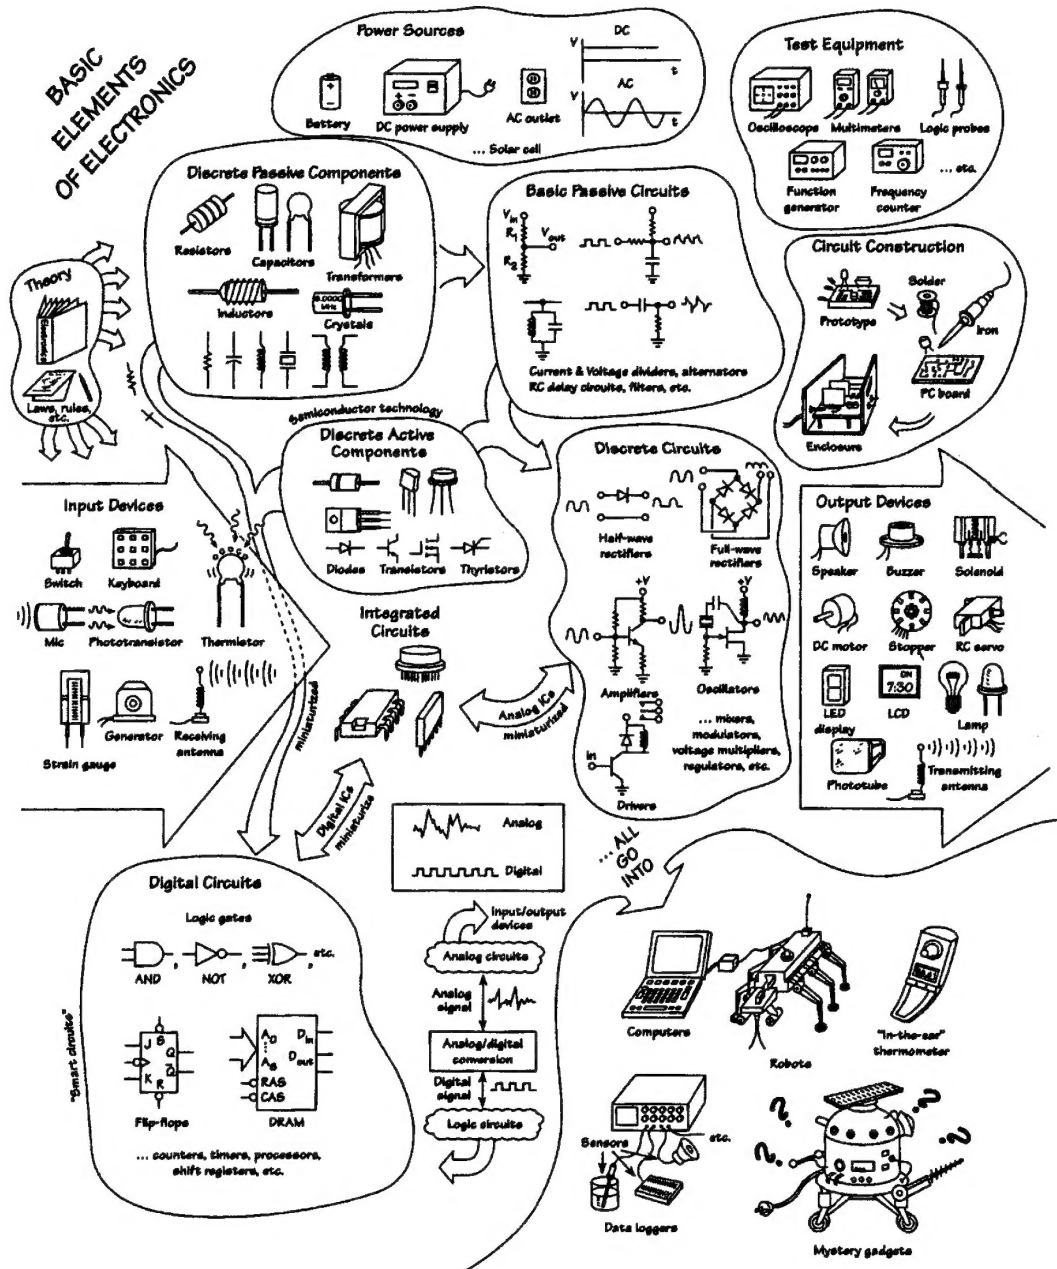 BASIC
ELEMENTS
OF ELECTRONICS
Power Sources
Battery
DC power supply
AC outlet
... Solar cell
DC
V
t
AC
V
t
Test Equipment
Oscilloscope
Multimeters
Logic probes
Function
generator
Frequency
counter
... etc.
Discrete Passive Components
Resistors
Capacitors
Transformers
Inductors
Crystals
Basic Passive Circuits
Vin
R1
Vout
R2
Current & Voltage dividers, alternators
RC delay circuits, filters, etc.
Circuit Construction
Prototype
Solder
Iron
PC board
Enclosure
Theory
Laws, rules,
etc.
Semiconductor technology
Discrete Active
Components
Diodes
Transistors
Thyristors
Discrete Circuits
Half-wave
rectifiers
Full-wave
rectifiers
+V
+V
Amplifiers
Oscillators
in
Drivers
... mixers,
modulators,
voltage multipliers,
regulators, etc.
Input Devices
Switch
Keyboard
Mic
Phototransistor
Thermistor
Strain gauge
Generator
Receiving
antenna
miniaturized
Integrated
Circuits
Analog ICs
miniaturized
Digital ICs
miniaturize
Output Devices
Speaker
Buzzer
Solenoid
DC motor
Stopper
RC servo
LED
display
ON
7:30
LCD
Lamp
Phototube
Transmitting
antenna
Analog
Digital
... ALL
GO
INTO
Digital Circuits
Logic gates
AND
,
NOT
,
XOR
, etc.
"Smart circuits"
J
S
Q
K
R
Q̅
Flip-flops
A0
...
A8
RAS
CAS
Din
Dout
DRAM
... counters, timers, processors,
shift registers, etc.
Input/output
devices
Analog circuits
Analog
signal
Analog/digital
conversion
Digital
signal
Logic circuits
Computers
Robots
"In-the-ear"
thermometer
Sensors
etc.
Data loggers
? ? ? ?
Mystery gadgets